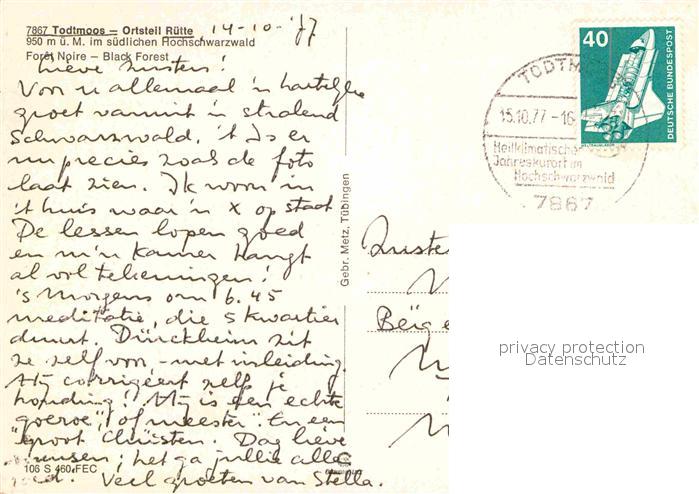 7867 Todtmoos – Ortsteil Rütte 14-10-'77
950 m ü. M. im südlichen Hochschwarzwald
Forêt Noire – Black Forest
Lieve zusters!
Voor u allemaal 'n hartelijke
groet vanuit 'n stralend
Schwarzwald. 't Is er
nu precies zoals de foto
laat zien. Ik woon in
't huis waar 'n x op staat
De lessen lopen goed
en m'n kamer hangt
al vol tekeningen!
's Morgens om 6.45
meditatie, die 5 kwartier
duurt. Dürckheim zit
ze zelf voor – met inleiding.
Hij corrigeert zelf je
houding! Hij is een echte
"goeroe" of "meester". En een
"groot" Christen. Dag lieve
mensen; het ga jullie alle
Veel groeten van Stella.
106 S 460 FEC
Gebr. Metz, Tübingen
40
DEUTSCHE BUNDESPOST
TODTM
15.10.77-16
Heilklimatischer
Jahreskurort im
Hochschwarzwald
7867
Zuste
Berge
privacy protection
Datenschutz